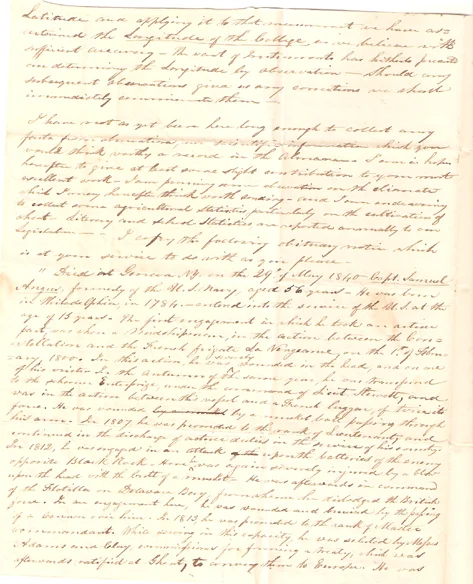 Latitude and applying it to that measurement we have as=
certained the Longitude of the College as we believe with
sufficient accuracy – the want of Instruments has hitherto prevented
us determining the Longitude by observation – Should any
subsequent observations give us any corrections we shall
immediately communicate them –
I have not as yet been here long enough to collect any
facts from observation, or scientific information which you
would think worthy a record in the Almanac I am in hopes
hereafter to give at least some slight contribution to your most
excellent work – I am pursuing some observations on the climate
which I may hereafter think worth sending – and I am endeavoring
to collect some agricultural statistics particularly on the cultivation of
wheat literary and school Statistics are reported annually to our
Legislature – I copy the following obituary notice which
is at your service to do with as you please –
" Died at Geneva N.Y. on the 29th of May 1840 – Capt. Samuel
Angus, formerly of the U.S. Navy, aged 56 years – He was born
in Philadelphia in 1784 – entered into the service of the U.S. at the
age of 15 years. The first engagement in which he took an active
part, was when a Midshipman, in the action between the Con=
stellation and the French frigate La Vengeance, on the 1st of Febru=
=ary 1800. In this action he was severely wounded in the head, and on one
of his wrists. In the Autumn of the same year, he was transferred
to the schooner Enterprise, under the command of Lieut Sterett, and
was in the action between this vessel and a French lugger, of twice its
force. He was wounded by a musket ball passing through
his arm. In 1807 he was promoted to the rank of Lieutenant, and
continued in the discharge of active duties in the service of his country.
In 1812, he was engaged in an attack upon the batteries of the enemy
opposite Black Rock. Here he was again severely injured by a blow
upon the head with the butt of a musket. He was afterwards in command
of the flotilla in Delaware Bay, from whence he dislodged the British
force. In an engagement here, he was wounded and burned by the
of a cannon. In 1813 he was promoted to the rank of Master
Commandant. While serving in this capacity, he was selected by Messrs
Adams and Clay, commissioners for forming a Treaty, which was
afterwards ratified at Ghent, to convey them to Europe. He was